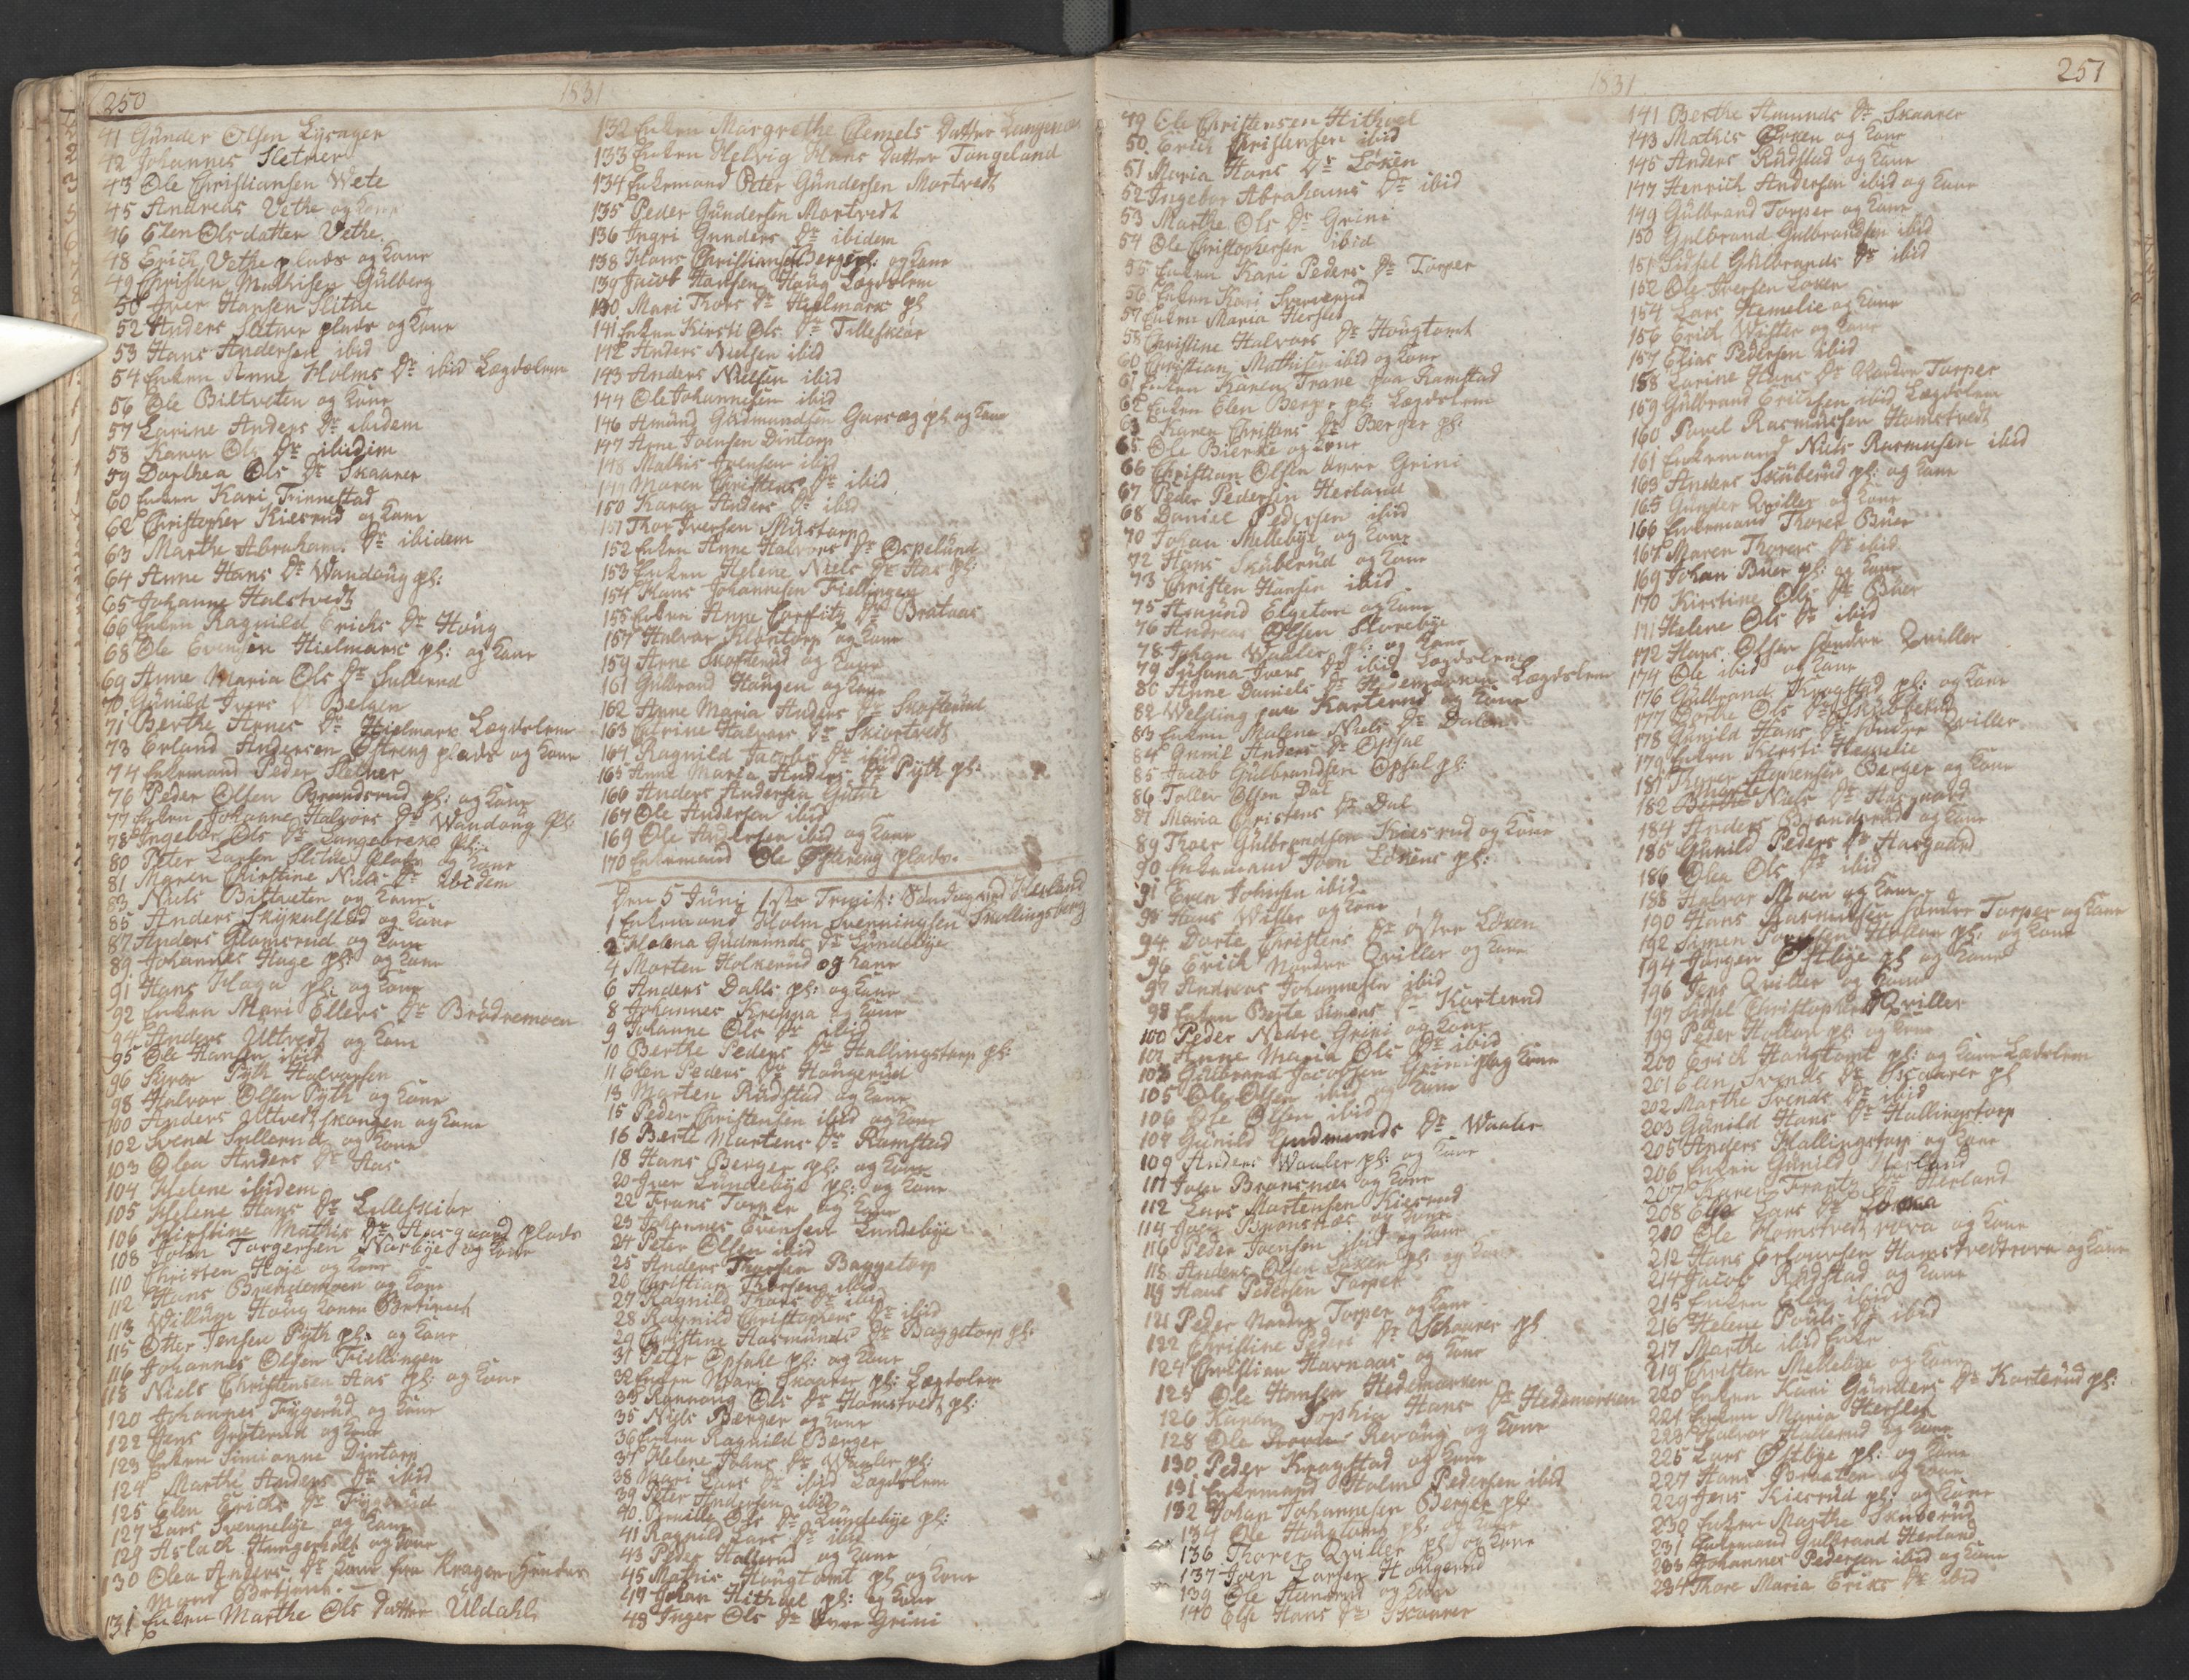 250
1831
41 Gunder Olsen Lysager
42 Johannes Sletner
43 Ole Christiansen Wete
45 Andreas Vethe og Kone
46 Elen Olsdatter Vethe
48 Erich Vethe plads og Kone
49 Christen Mathisen Gulberg
50 Iver Hansen Slithe
52 Anders Sletner plads og Kone
53 Hans Andersen ibid
54 Enken Anne Holms Dr ibid Lægdslem
56 Ole Biltveten og Kone
57 Larine Anders Dr ibidem
58 Karen Ols Dr ibidim
59 Dorthea Ols Dr Skaarer
60 Enken Kari Finnestad
62 Christopher Kiesrud og Kone
63 Marthe Abraham. Dr ibidem
64 Anne Hans Dr Wandoug pl:
65 Johanne Halstvedt
66 Enken Ragnild Erichs Dr Houg
68 Ole Evensen Hielmark pl: og Kone
69 Anne Maria Ols Dr Sullerud
70 Gunild Ivers D Belgen
71 Berthe Arnes Dr Hielmark Lægdslem
73 Erland Andersen Østreng plads og Kone
74 Enkemand Peder Sletner
76 Peder Olsen Brandsrud pl: og Kone
77 Enken Johanne Halvors Dr Wandoug Pl:
78 Ingebor Ols Dr Langebrekke pl:
80 Peter Larsen Slitue plads og Kone
81 Maren Kirstine Niels Dr ibidem
83 Niels Biltveten og Kone
85 Anders Skykulstad og Kone
87 Anders Glomsrud og Kone
89 Johannes Hage pl: og Kone
91 Hans Haga pl: og Kone
92 Enken Mari Ellevs Dr Brudremoen
94 Anders Ultvedt og Kone
95 Ole Hansen ibid
96 Pyth Halvorsen
98 Halvor Olsen Pyth og Kone
100 Anders Ultvedtskougen og Kone
102 Svend Sullerud og Kone
103 Olea Anders Dr Aas
104 Helene ibidem
105 Helene Hans Dr Lilleskibr
106 Kirstine Mathis Dr Haasgaard plads
108 John Torgersen Narbye og Kone
110 Christen Hoje og Kone
112 Hans Brendemoen og Kone
113 Willum Houg Konen
115 Otter Jensen Pyth pl: og Kone
116 Johannes Olsen Fiellingen
118 Niels Christensen Aas pl: og Kone
120 Johannes Frygerud og Kone
122 Jens Groterud og Kone
123 Enken Simianne Dintorp
124 Marthe Anders Dr ibid
125 Elen Erichs Dr Frygerud
127 Lars Svennebye og Kone
129 Aslach Hungerholt og Kone
130 Olea Anders Dr Kone fra Kragen Hendes
Mand
131 Enken Marthe Ols Datter Uldahl
132 Enken Margrethe Clemets Datter Langenæs
133 Enken Helvig Hans Datter Tangeland
134 Enkemand Peter Gundersen Mortvedt
135 Peder Gundersen Mortvedt
136 Ingri Gunders Dr ibidem
138 Hans Christiansen Berger pl: og Kone
139 Jacob Hansen Houg Lægdslem
140 Mari Thors Dr Hielmark pl
141 Enken Kirsti Ols Dr Tilleskiær
142 Anders Nielsen ibid
143 Anders Nielsen ibid
144 Ole Johannesen ibid
146 Amund Gudmundsen Garseg pl og Kone
147 Arne Joensen Dintorp
148 Mathis Joensen ibid
149 Maren Christens Dr ibid
150 Karen Anders Dr ibid
151 Thor Iversen Mustorp
152 Enken Anne Halvors Dr Ospelund
153 Enken Helene Niels Dr Aas pl:
154 Hans Johannesen Fiellingen
155 Enken Anne Corfitz Dr Brataas
157 Halvor Klontorp og Kone
159 Arne Skofterud og Kone
161 Gulbrand Haugen og Kone
162 Anne Maria Anders Dr Skofterud
163 Cathrine Halvors Dr Skiortvedt
164 Ragnild Jacobs Dr ibid
165 Anne Maria Anders Dr Pyth pl:
166 Anders Andersen Gutue
167 Ole Andersen ibid
169 Ole Andersen ibid og Kone
170 Enkemand Ole Østereng plads.
Den 5 Juni 1ste Trinit: Søndag ved Herland
1 Enkemand Holm Svenningsen Snollingsberg
2 Malena Gudmunds Dr Lundebye
4 Morten Holkerud og Kone
6 Anders Dahls pl: og Kone
8 Johannes Kreppa og Kone
9 Johanne Ols Dr ibid
10 Berthe Peders Dr Hallingstorp pl:
11 Elen Peders Dr Haugerud
13 Morten Rudstad og Kone
15 Peder Christensen ibid og Kone
16 Berte Martens Dr Ramstad
18 Hans Berger pl: og Kone
20 Iver Lundebye pl: og Kone
22 Frans Torper og Kone
23 Johannes Evensen Lundebye
24 Peter Olsen ibid
25 Anders Thorsen Baggetorp
26 Christian Thorsen ibid
27 Ragnild Thors Dr ibid
28 Ragnild Christophers Dr ibid
29 Christine Rasmunds Dr Baggetorp pl:
31 Peter Opsahl pl: og Kone
32 Enken Mari Skaarer pl: Lægdslem
33 Rønnoug Ols Dr Hamstvedt pl:
35 Niels Berger og Kone
36 Enken Ragnild Berger
37 Helene Johns Dr Waaler pl:
38 Mari Lars Dr ibid Lægdslem
39 Peter Andersen ibid
40 Pernille Ols Dr Lundebye pl:
41 Ragnild Lars Dr ibid
43 Peder Hallerud og Kone
45 Mathis Hougtomt pl og Kone
47 Johan Hithoel pl: og Kone
48 Inger Ols Dr øvre Grini
1831
251
49 Ole Christensen Hithoel
50. Erich Christensen ibid
51 Maria Hans Dr Løken
52 Ingebor Abrahams Dr ibid
53 Marthe Ols Dr Grini
54 Ole Christophersen ibid
55 Enken Kari Peders Dr Torper
56. Enken Kari
57 Enken Maria Hersled
58 Christine Halvors Dr Hougtomt
60 Christian Mathisen ibid og Kone
61 Enken Karen Trane paa Ramstad
62 Enken Elen Berger pl: Lægdslem
63 Karen Christens Dr Berger pl:
65 Ole Bierke og Kone
66 Christian Olsen øvre Grini
67 Peder Pedersen Herland
68 Daniel Pedersen ibid
70 Johan Mellebye og Kone
72 Hans Skuberud og Kone
73 Christen Hansen ibid
75 Amund Elgetun og Kone
76 Andreas Olsen Storebye
78 Johan Waaler pl: og Kone
79 Susana Ivers Dr ibid Lægdslem
80 Anne Daniels Dr Hedemarken Lægdslem
82 Welsting paa Karterud og Kone
83 Enken Malene Niels Dr Dalen
84 Gunil Anders Dr Opsal
85 Jacob Gulbrandsen Opsal pl:
86 Tollev Olsen Dal
87 Maria Christens Dr Dal
89 Thoer Gulbrandsen Kiesrud og Kone
90 Enkemand Joen Løkens pl:
91 Even Johnsen ibid
93 Hans Wister og Kone
94 Dorte Christens Dr østre Løken
96 Erich Nordre Qviller og Kone
97 Andreas Johannesen ibid
98 Enken Berte Simens Dr Karterud
100 Peder Nedre Grini og Kone
101 Anne Maria Ols Dr ibid
103 Gulbrand Jacobsen Grini pl og Kone
105 Ole Olsen ibid og Kone
106 Ole Olsen ibid
107 Gunild Gudmunds Dr Waaler
109 Anders Waaler pl: og Kone
111 John Bransnæs og Kone
112 Lars Mortensen Kiesrud
114 Joen Bronsnæs og Kone
116 Peder Joensen ibid og Kone
118 Anders Olsen Løken pl: og Kone
119 Hans Pedersen Torper
121 Peder Nordre Torper og Kone
122 Christine Peders Dr Schaarer pl
124 Christian Havnaas og Kone
125 Ole Hansen Hedemarken
126 Karen Sophie Hans Dr Hedemarken
128 Ole Revoug og Kone
130 Peder Kragstad og Kone
131 Enkemand Holm Pedersen ibid
132 Johan Johannesen Berger pl:
134 Ole Hougtomt pl: og Kone
136 Thorer Qviller pl og Kone
137 Joen Larsen Hougerud
139 Ole og Kone
140 Else Hans Dr Skaarer
141 Berthe Amunds Dr Skaarer
143 Mathis Løken og Kone
145 Anders Rudstad og Kone
147 Henrich Andersen ibid og Kone
149 Gulbrand Torper og Kone
150 Gulbrand Gulbrandsen ibid
151 Sidsel Gulbrands Dr ibid
152 Ole Iversen Løken
154 Lars Hemelie og Kone
156 Erich Wister og Kone
157 Elias Pedersen ibid
158 Larine Hans Dr Nordre Torper
159 Gulbrand Erichsen ibid Lægdslem
160 Povel Rasmussen Hamstvedt
161 Enkemand Niels Rasmusen ibid
163 Anders Skuberud pl: og Kone
165 Gunder Qviller og Kone
166 Enkemand Thorer Buer
167 Maren Thorers Dr ibid
169 Johan Buer pl: og Kone
170 Kirstine Ols Dr Buer
171 Helene Ols Dr ibid
172 Hans Olsen søndre Qviller
174 Ole ibid og Kone
176 Gulbrand Kragstad pl: og Kone
177 Berthe Ols Dr Skubberud
178 Gunild Hans Dr søndre Qviller
179 Enken Kirsti Hemelie
181 Thorer Mortensen Berger og Kone
182 Marte Niels Dr Haugaard
184 Anders Brandsrud og Kone
185 Gunild Peders Dr Haugaard
186 Olea Ols Dr ibid
188 Halvor Moen og Kone
190 Hans Rasmussen søndre Torper og Kone
192 Simen Povelsen Holtan pl: og Kone
194 Jørgen Østbye pl og Kone
196 Jens Qviller og Kone
197 Sidsel Christophers Dr Qviller
199 Peder Holtan pl: og Kone
200 Erich Hougtomt pl: og Kone Lædslem
201 Elen Svends Dr Skaarer pl
202 Marthe Svends Dr ibid
203 Gunild Hans Dr Hallingstorp
205 Anders Hallingstorp og Kone
206 Enken Gunild Herland
207 Karen Frantz Dr Herland
208 Else Lars Dr
210 Ole Hamstvedtrova og Kone
212 Hans Erlandsen Hamstvedtrova og Kone
214 Jacob Rudstad og Kone
215 Enken Elen ibid
216 Helene Pouls Dr ibid
217 Marthe ibid Enke
219 Christen Mellebye og Kone
220 Enken Kari Gunders Dr Karterud pl:
221 Enken Maria Hersled
223 Halvor Hallerud og Kone
225 Lars Østbye pl: og Kone
227 Hans Braaten og Kone
229 Jens Kiesrud pl: og Kone
230 Enken Marthe Skuberud
231 Enkemand Gulbrand Herland
233 Johannes Pedersen ibid og Kone
234 Thore Maria Eriks Dr ibid